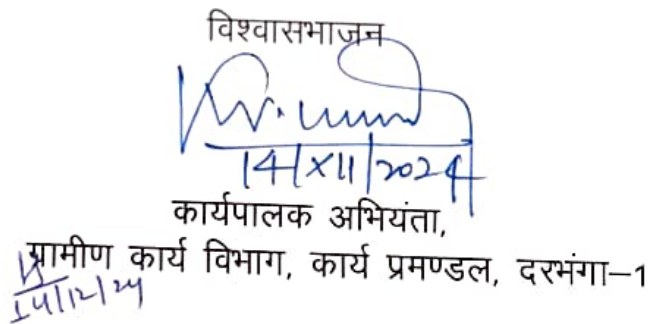 विश्वासभाजन
14/XII/2024
कार्यपालक अभियंता,
ग्रामीण कार्य विभाग, कार्य प्रमण्डल, दरभंगा–1
14/12/24